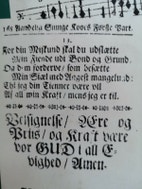 168 Aandelig Siunge Koors Første Part.
13.
For din Miskund skal du udslætte
Min Fiende udi Bond og Grund.
Oc dem fordærve / som besætte
Min Siæl med Angest mangelund:
Thi jeg din Tienner være vil
Af all min Kraft / mens jeg er til.
Velsignelse / Ære og
Priis / og Kraft være
vor GUD i all E-
vighed / Amen.